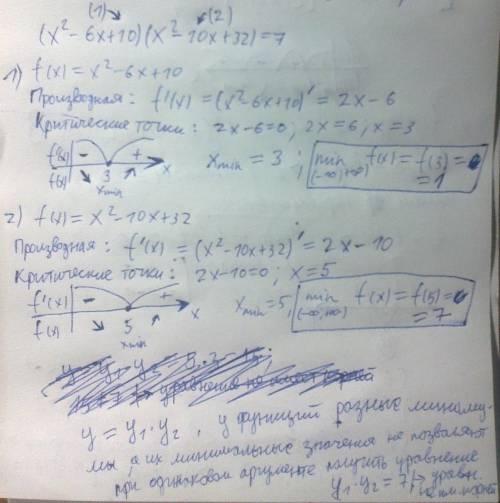 (1) (2)
(x²-6x+10)(x²-10x+32)=7
1) f(x)=x²-6x+10
Производная: f'(x)=(x²-6x+10)'=2x-6
Критические точки: 2x-6=0; 2x=6; x=3
f'(x) - + x
f(x) 3 xmin
xmin = 3 ; min f(x)=f(3)=
(-∞;+∞) =1
2) f(x)=x²-10x+32
Производная: f'(x)=(x²-10x+32)'=2x-10
Критические точки: 2x-10=0; x=5
f'(x) - + x
f(x) 5 xmin
xmin=5, min f(x)=f(5)=
(-∞;+∞) =7
уравнение не имеет
y=y₁·y₂, у функций разные миниму-
мы, а их минимальные значения не позволяют
при одинаковом аргументе получить уравнение
y₁·y₂=7 уравн.
не им.